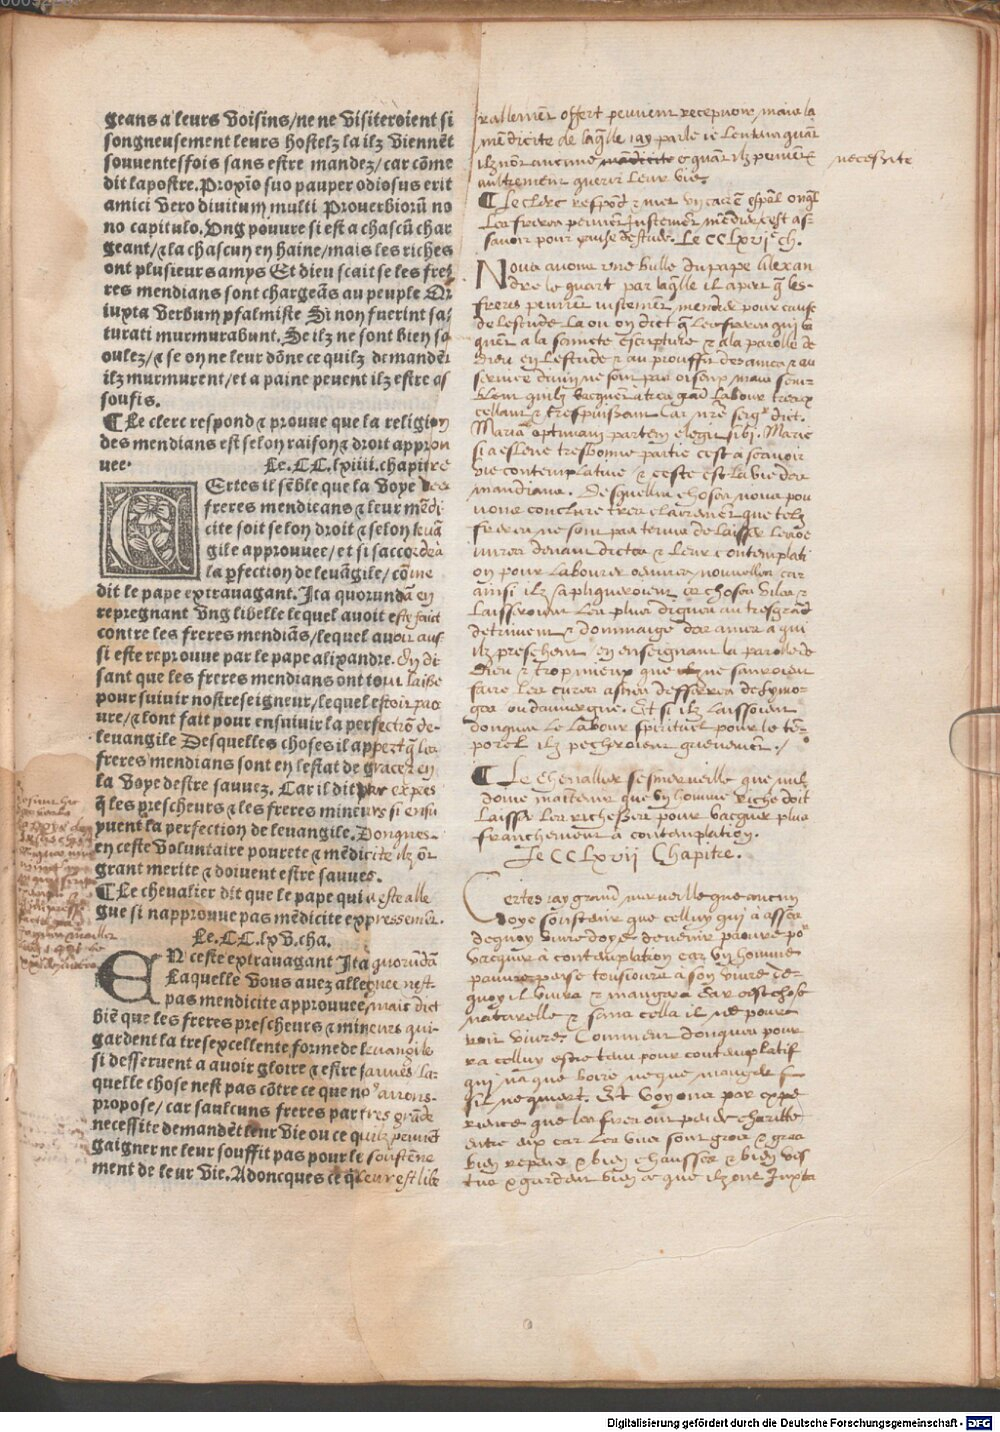 geans a leurs Voisins/ne ne Visiteroient si
songneusement leurs hostelz la ilz Viennēt
souuentesfois sans estre mandez/car cōme
dit lapostre. Propio suo pauper odiosus erit
amici Vero diuitum multi Prouerbiorū no
no capitulo. Ung poure si est a chascū char
geant/ & la chascun en haine/mais les riches
ont plusieurs amys Et dieu scait se les fre
res mendians sont chargeās au peuple
iuxta Verbum psalmiste Si non fuerint sa
turati murmurabunt. Se ilz ne sont bien sa
oulez/ & se on ne leur dōne ce quilz demandēt
ilz murmurent/et a paine peuent ilz estre as
souffis.
¶ Le clerc respond & prouue que la religion
des mendians est selon raison & droit approu
uee. Le. CC. lxiiii. chapitre
Certes il sēble que la Voye des
freres mendicans & leur mēdi
cite soit selon droit & selon leuā
gile approuuee/et si saccorde a
la p̄fection de leuāgile/cōme
dit le pape extrauagant. Ita quorundā en
repregnant Ung libelle lequel auoit este faict
contre les freres mendiās/lequel auoit aus
si este reprouue par le pape alixandre. En di
sant que les freres mendians ont tout laisse
pour suiuir nostreseigneur/lequel estoit pao
ure/ & lont fait pour ensuiuir la perfectiō de
leuangile Desquelles choses il appert q̄ les
freres mendians sont en lestat de grace & en
la Voye destre sauuez. Car il dit par expres
q̄ les prescheurs & les freres mineurs si ensui
uuent la perfection de leuangile. Donques
en ceste Voluntaire pourete & mēdicite ilz ōt
grant merite & doiuent estre sauues.
¶ Le chevalier dit que le pape qui a este alle
gue si napprouue pas mēdicite expressemēt.
Le. CC. lxV. cha.
EN ceste extrauagant Ita quorundā
Laquelle Vous auez alleguee nest
pas mendicite approuuee/mais dict
biē que les freres prescheurs & mineurs qui
gardent la tresexcellente forme de leuangile
si desseruent a auoir gloire & estre sauues la
quelle chose nest pas cōtre ce que noꝰ auons
propose/car saulcuns freres par tres grāde
necessite demandēt leur Vie ou ce quilz peuuēt
gaigner ne leur souffit pas pour le soustene
ment de leur Vie. Adoncques ce q̄ leur est libe
rallemēt offert peuuent recepuoir, mais la
mēdicite de laq̄lle iay parle
ilz nōt aucune necessite & quāt ilz peuuēt
aultrement querir leur vie.
¶ Le clerc respōd & met
Les freres peuuēt Justemēt mēdier cest as
sauoir pour cause destude. Le CC lxvjᵉ ch.
Nous auons vne bulle du pape Alexan
dre le quart par laq̄lle il apert q̄ les
freres peuuēt iustemēt mender pour cause
de lestude La ou on dict q̄ les freres qui va
quēt a la saincte escripture & a la parolle de
dieu en lestude & au prouffit des ames & au
seruice diuin ne sont pas oiseux mais sem
blent quilz vacquēt a tresgrād labour tresex
cellant & trespuissant Car nr̄e seigʳ dict.
Maria optimam partem elegit sibi. Marie
si a esleue tresbonne partie cest a scauoir
vie contemplatiue & ceste est la vie des
mandians. Desquelles choses nous pou
uons conclure tres clairemēt que telz
freres ne sont pas tenus de laisser
deuant dictes & leur contemplati
on pour labourer car
ainsi ilz sapliqueroient es choses viles &
laisseroient les plus dignes au tresgrād
detriment & dommaige des ames a qui
ilz preschent en enseignant la parolle de
Dieu & trop mieulx que ne sauroient
faire les cures
ou dauuergne. Et si ilz laissoient
donques le labour spirituel pour le tē
porel ilz pecheroient griefuemēt./
¶ Le chevallier sesmerueille que nul
doiue maintenir que vn homme riche doit
laisser les richesses pour vacquer plus
franchement a contemplation.
Le CC lxvii Chapitre.
Certes iay grand merueille que aucun
doye soustenir que celluy qui a asses
dequoy viure doye deuenir pauure poʳ
vacquer a contemplation car vn homme
pauure pense tousiours a son viure de
quoy il viura & mangera Car cest chose
naturelle & sans cella il ne pourroit
viure. Comment donques pour
ra celluy estre tenu pour contemplatif
qui na que boire ne que manger s
il ne quiert. Et voyons par expe
rience que les freres ont peu de charitte
entre eux car les vngs sont gros & gras
bien repeus & bien chausses & bien ves
tus & gardent bien ce que ilz ont Juxta
necessite
Digitalisierung gefördert durch die Deutsche Forschungsgemeinschaft - DFG